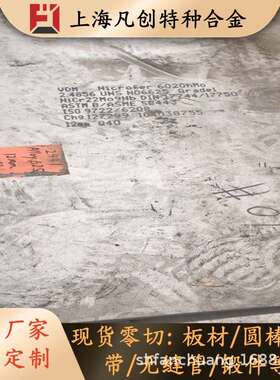 上海凡创特种合金
VDM Nicrofer 6020hMo
2.4856 UNS N06625 Grade1
NiCr22Mo9Nb DIN 17744/17750
ASTM B/ASME SB443
ISO 9722/6208
厂家
定制
现货零切:板材/圆棒
带/无缝管/锻件
shfanchuang.1688.c